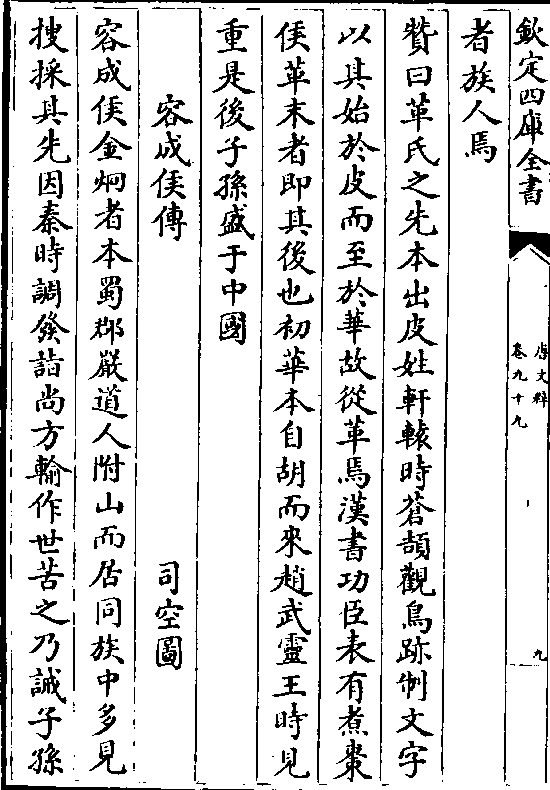 欽定四庫全書
唐文粹
卷九十九
九
者族人焉
贊曰革氏之先本出皮姓軒轅時蒼頡觀鳥跡制文字
以其始於皮而至於華故從革焉漢書功臣表有煮棗
侯革末者即其後也初華本自胡而來趙武靈王時見
重是後子孫盛于中國
容成侯傳
司空圖
容成侯金炯者本蜀郡嚴道人附山而居同族中多見
搜採其先因秦時調發詣尚方輸作世苦之乃誡子孫